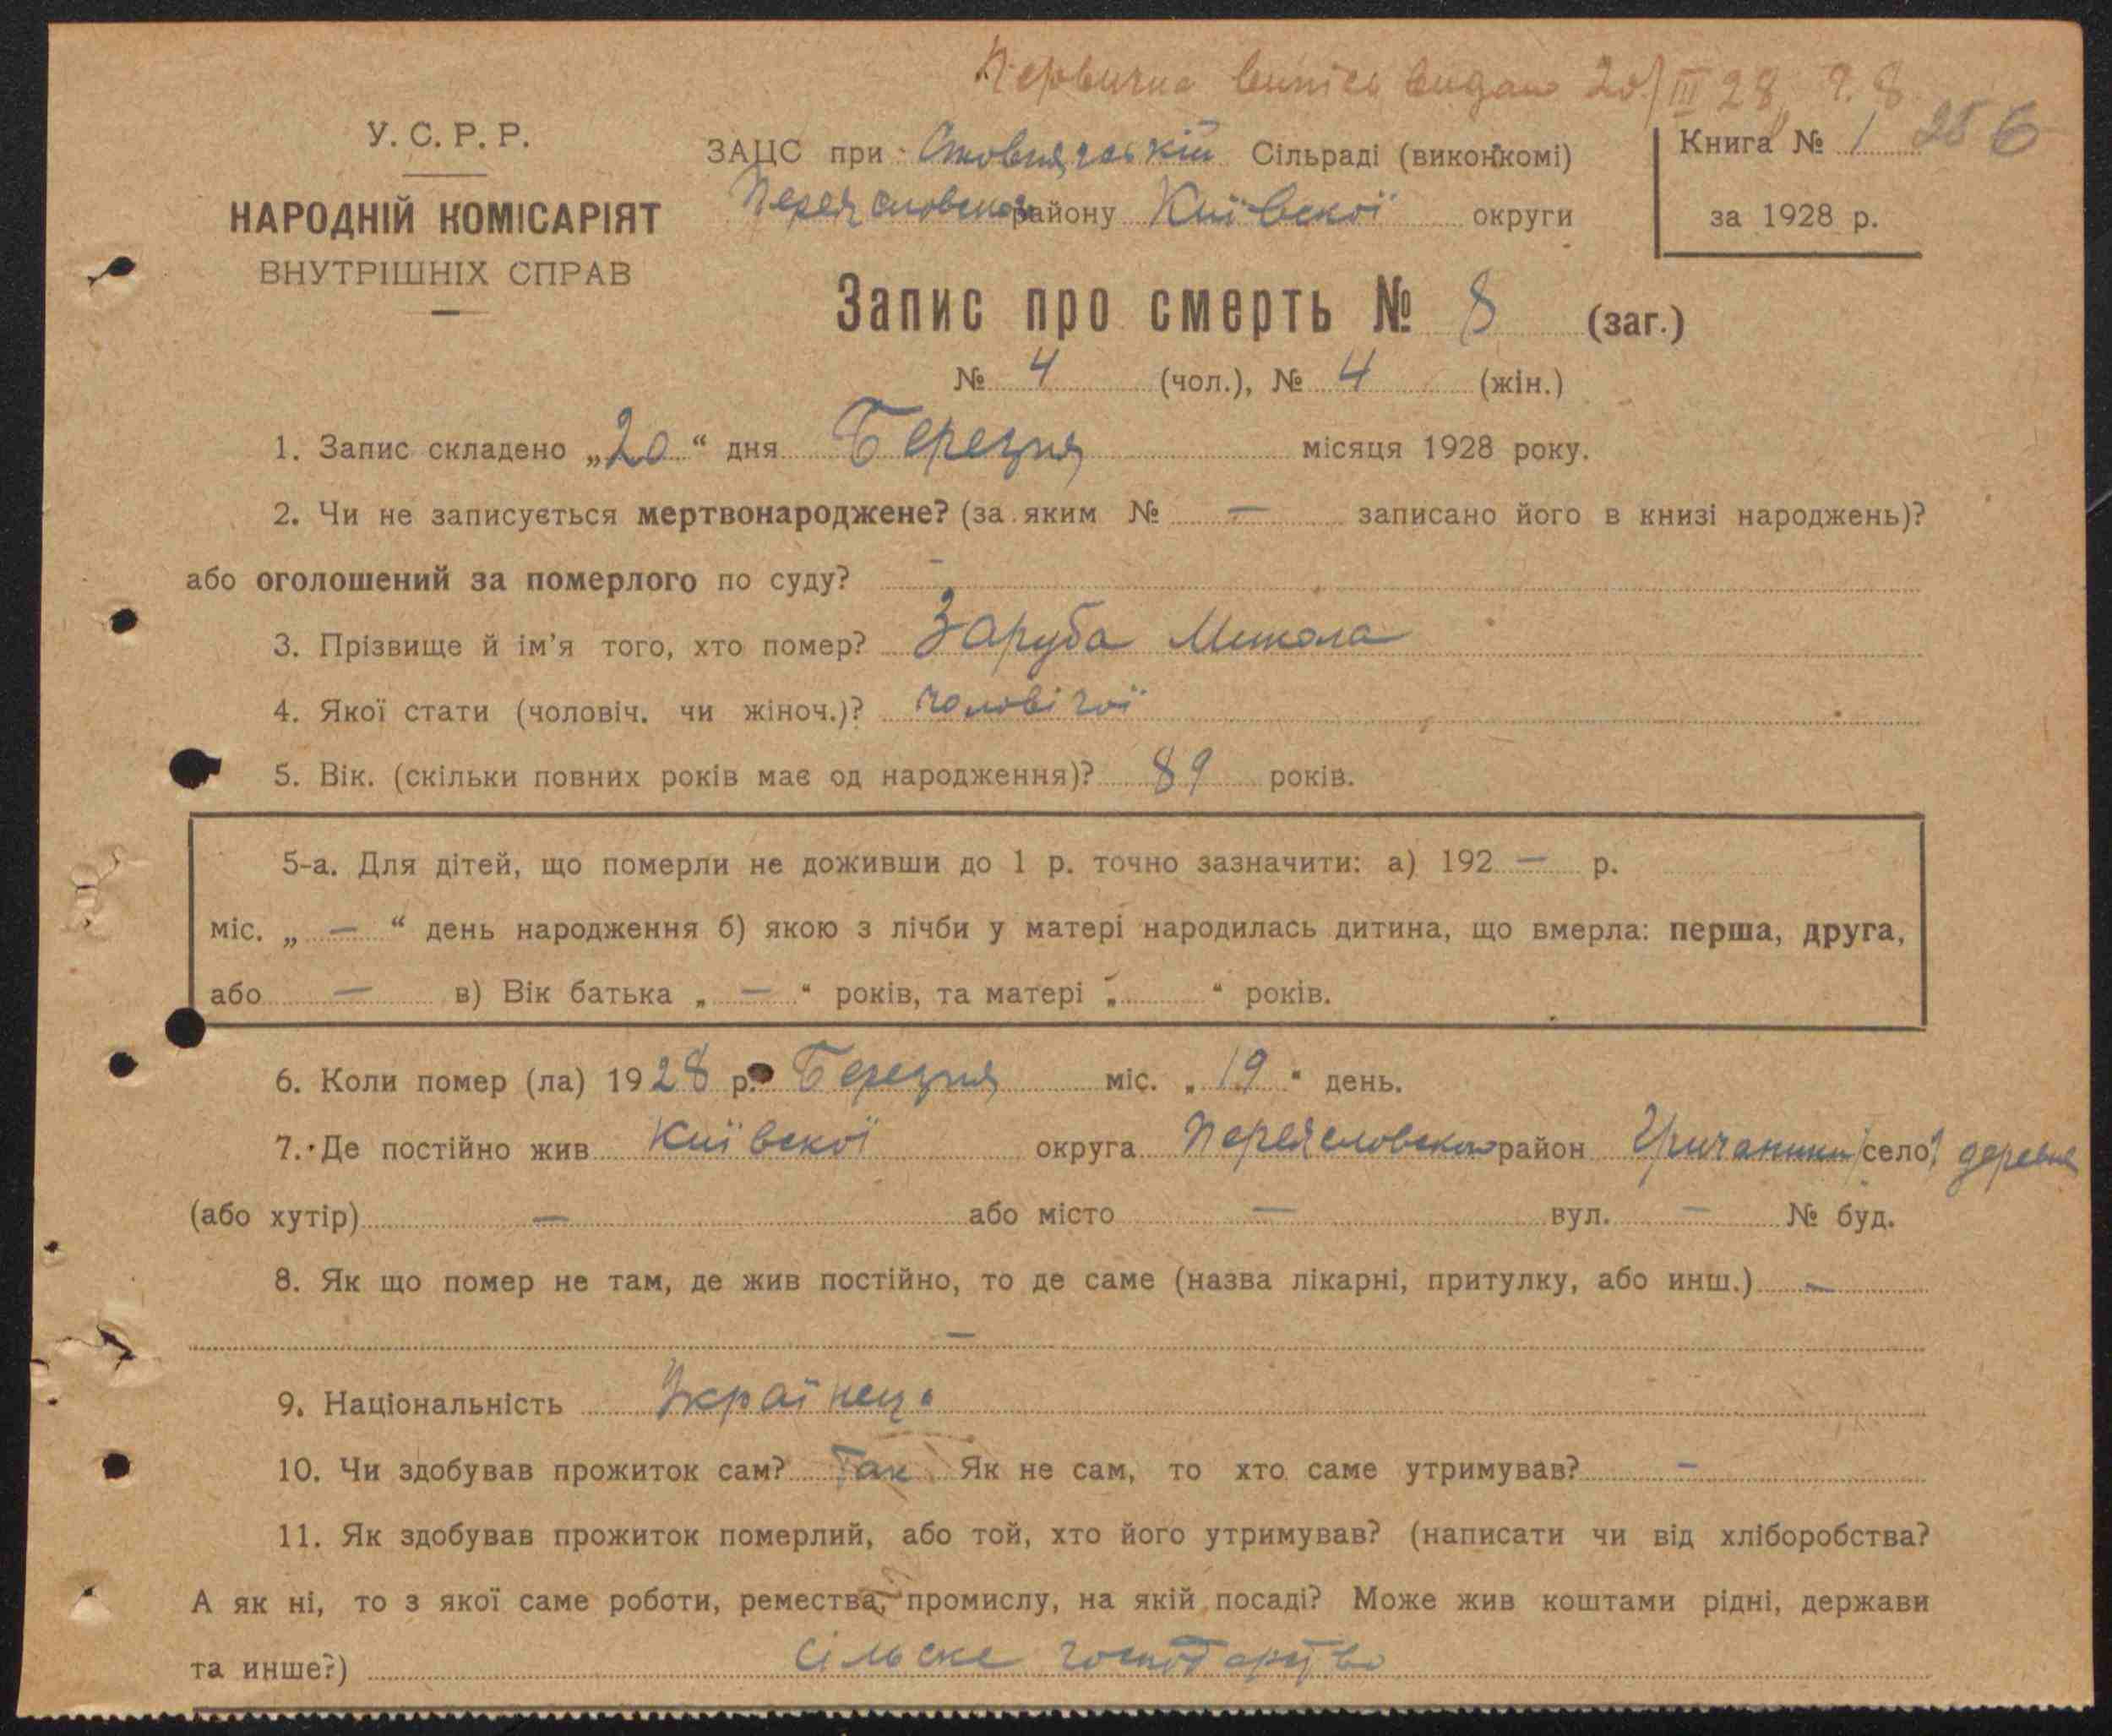 Первична випись видана 20/III 28 р. 8
У. С. Р. Р.
НАРОДНІЙ КОМІСАРІЯТ
ВНУТРІШНІХ СПРАВ
ЗАЦС при Стовпязькій Сільраді (виконкомі)
Переясловского району Київскої округи
Книга № 1 25 6
за 1928 р.
Запис про смерть № 8 (заг.)
№ 4 (чол.), № 4 (жін.)
1. Запис складено „20“ дня Березня місяця 1928 року.
2. Чи не записується мертвонароджене? (за яким № — записано його в книзі народжень)?
або оголошений за померлого по суду? —
3. Прізвище й ім'я того, хто помер? Заруба Микола
4. Якої стати (чоловіч. чи жіноч.)? чоловічої
5. Вік. (скільки повних років має од народження)? 89 років.
5-а. Для дітей, що померли не доживши до 1 р. точно зазначити: а) 192 — р.
міс. „ — “ день народження б) якою з лічби у матері народилась дитина, що вмерла: перша, друга,
або — в) Вік батька „ — “ років, та матері „ “ років.
6. Коли помер (ла) 1928 р. Березня міс. „19“ день.
7. Де постійно жив Київскої округа Переясловского район село деревня
(або хутір) — або місто — вул. — № буд.
8. Як що помер не там, де жив постійно, то де саме (назва лікарні, притулку, або инш.) —
—
9. Національність Українець
10. Чи здобував прожиток сам? Так Як не сам, то хто саме утримував? —
11. Як здобував прожиток померлий, або той, хто його утримував? (написати чи від хліборобства?
А як ні, то з якої саме роботи, ремества, промислу, на якій посаді? Може жив коштами рідні, держави
та инше?) сільске господарство